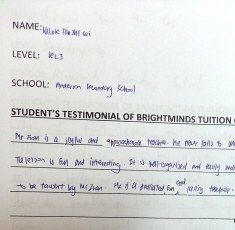 NAME: Valerie Tan Shi Wei
LEVEL: Sec 3
SCHOOL: Anderson Secondary School
STUDENT'S TESTIMONIAL OF BRIGHTMINDS TUITION
Mr Juan is a joyful and approachable teacher. He never fails to
The lesson is fun and interesting. It is well-organised and easily
to be taught by Mr Juan. He is a dedicated, fun and caring teacher.